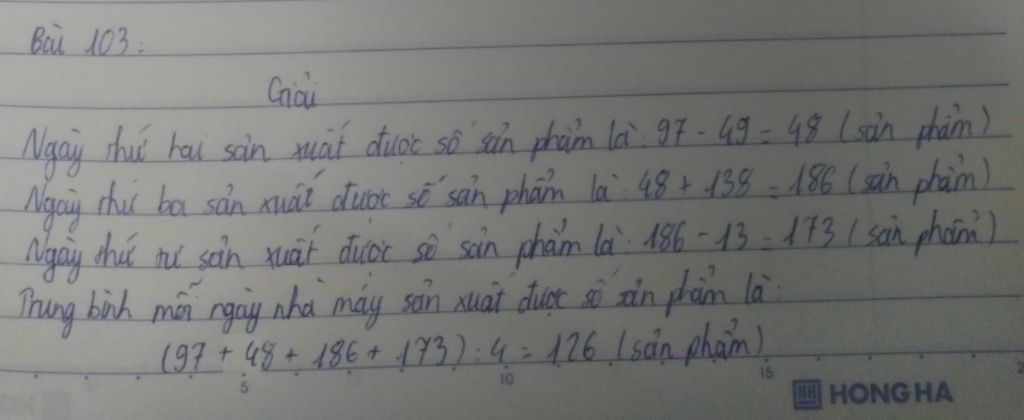 Bài 103:
Giải
Ngày thứ hai sản xuất được số sản phẩm là: 97 - 49 = 48 (sản phẩm)
Ngày thứ ba sản xuất được số sản phẩm là: 48 + 138 = 186 (sản phẩm)
Ngày thứ tư sản xuất được số sản phẩm là: 186 - 13 = 173 (sản phẩm)
Trung bình mỗi ngày nhà máy sản xuất được số sản phẩm là:
(97 + 48 + 186 + 173) : 4 = 126 (sản phẩm)
5 10 15 2
HONG HA